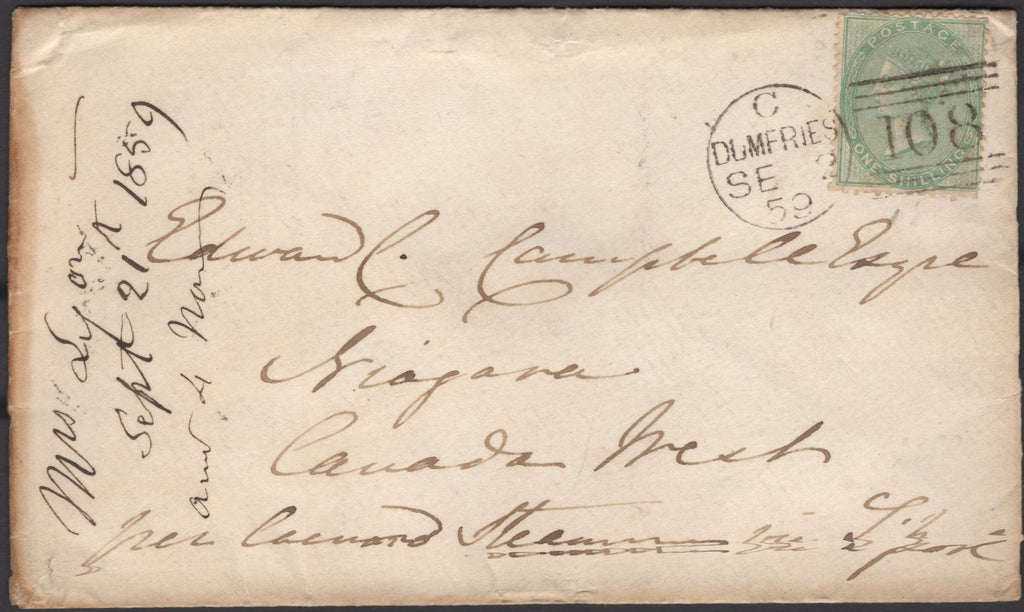 POSTAGE
ONE SHILLING
108
C
DUMFRIES
SE 2
59
Edward C. Campbell Esqre
Niagara
Canada West
per Cunard Steamer via L'pool
Mrs Lyon
Sept 21st 1859
and 4 Nov